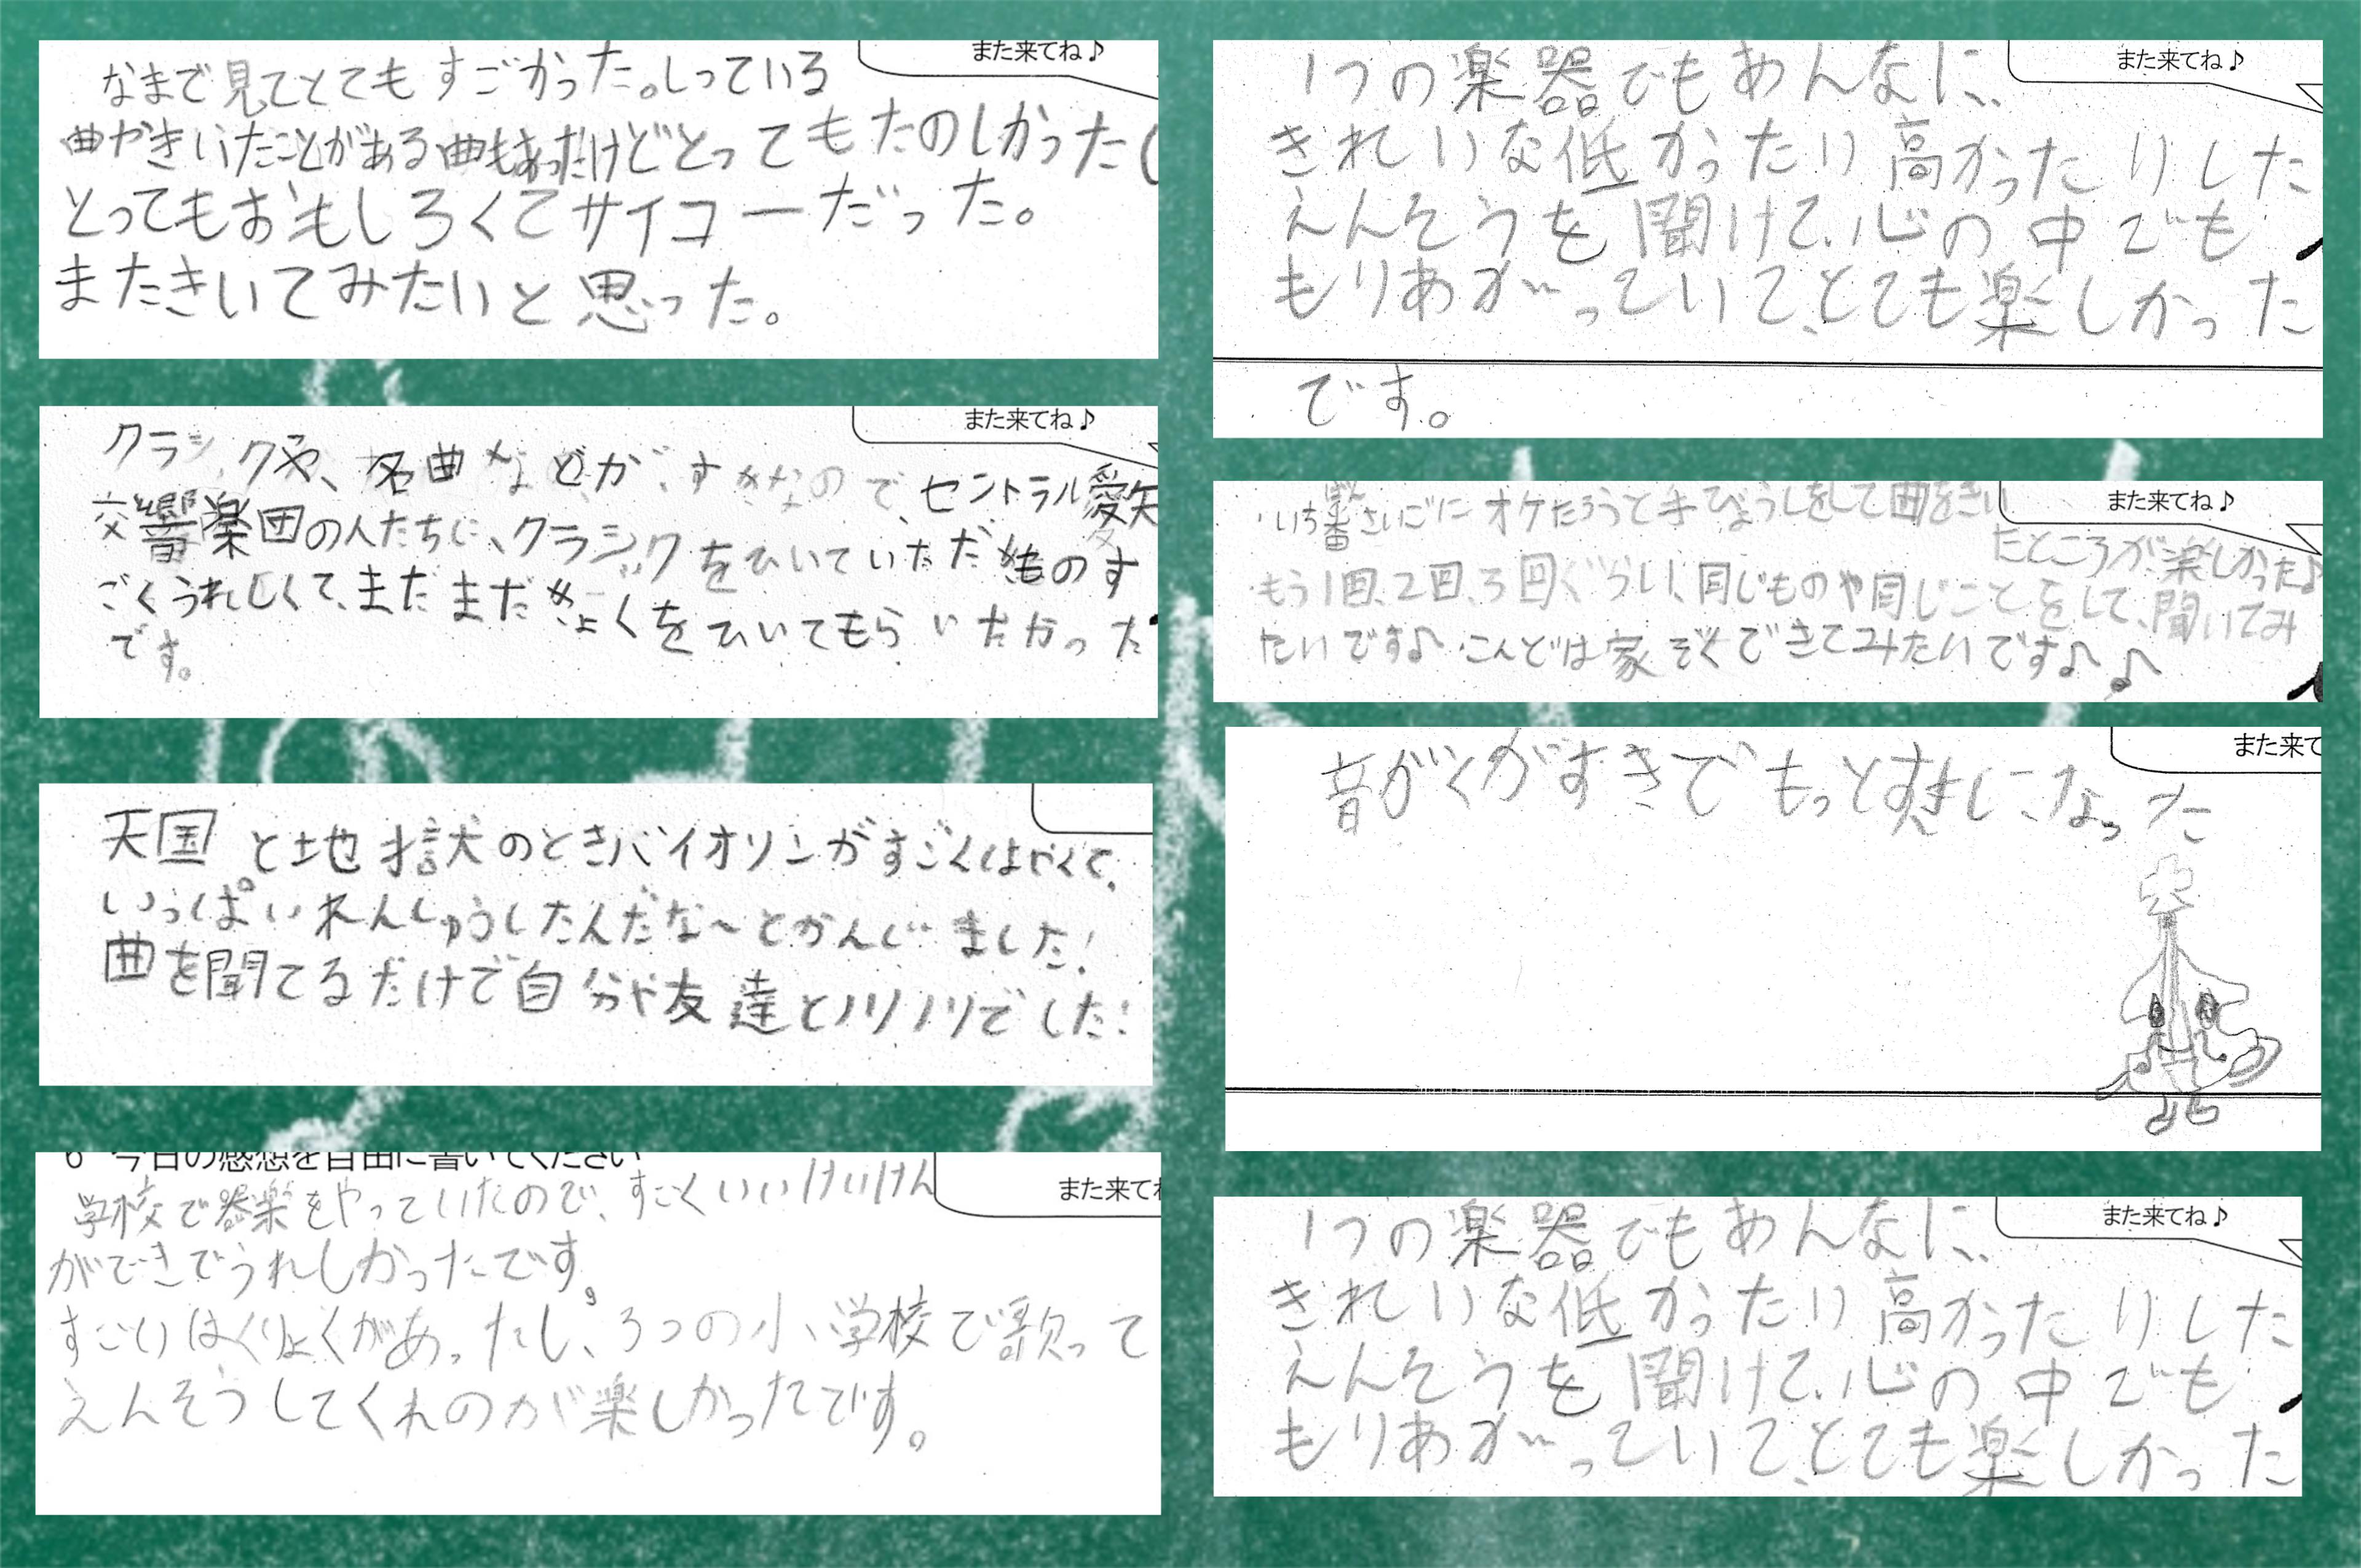 また来てね♪
なまで見てとてもすごかった。しっている
曲やきいたことがある曲もあったけどとってもたのしかった(
とってもおもしろくてサイコーだった。
またきいてみたいと思った。
また来てね♪
クラシックや、名曲などが、すきなので、セントラル愛知
交響楽団の人たちに、クラシックをひいていただきものす
ごくうれしくて、まだまだきょくをひいてもらいたかった
です。
天国と地獄のときバイオリンがすごくはやくて、
いっぱいれんしゅうしたんだな～とかんじました!
曲を聞てるだけで自分や友達とノリノリでした!
6 今日の感想を自由に書いてください
また来てね
学校で器楽をやっていたので、すごくいいけいけん
ができでうれしかったです。
すごいはくりょくがあったし、3つの小学校で歌って
えんそうしてくれのが楽しかったです。
また来てね♪
1つの楽器でもあんなに、
きれいな低かったり高かったりした
えんそうを聞けて、心の中でも
もりあがっていて、とても楽しかった
です。
また来てね♪
・いち番さいごにオケたろうと手びょうしをして曲をきい
たところが楽しかった♪
・もう1回、2回、3回ぐらい、同じものや同じことをして、聞いてみ
たいです♪・こんどは家ぞくできてみたいです♪♪
また来て
音がくがすきでもっとすきになった
また来てね♪
1つの楽器でもあんなに、
きれいな低かったり高かったりした
えんそうを聞けて、心の中でも
もりあがっていて、とても楽しかった